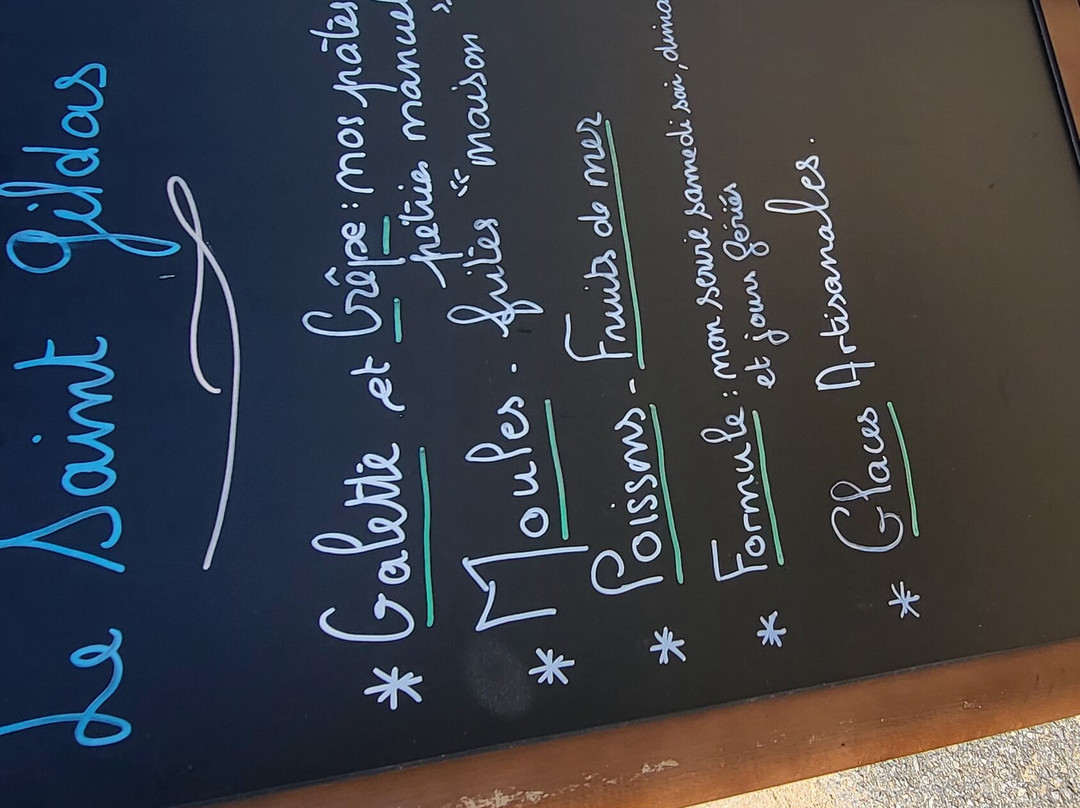 Le Saint Gildas
* Galette et Crêpe : nos pâtes
pétries manuel
* Moules - frites "maison"
* Poissons - Fruits de mer
* Formule : non servie samedi soir, dima
et jours fériés
* Glaces Artisanales.